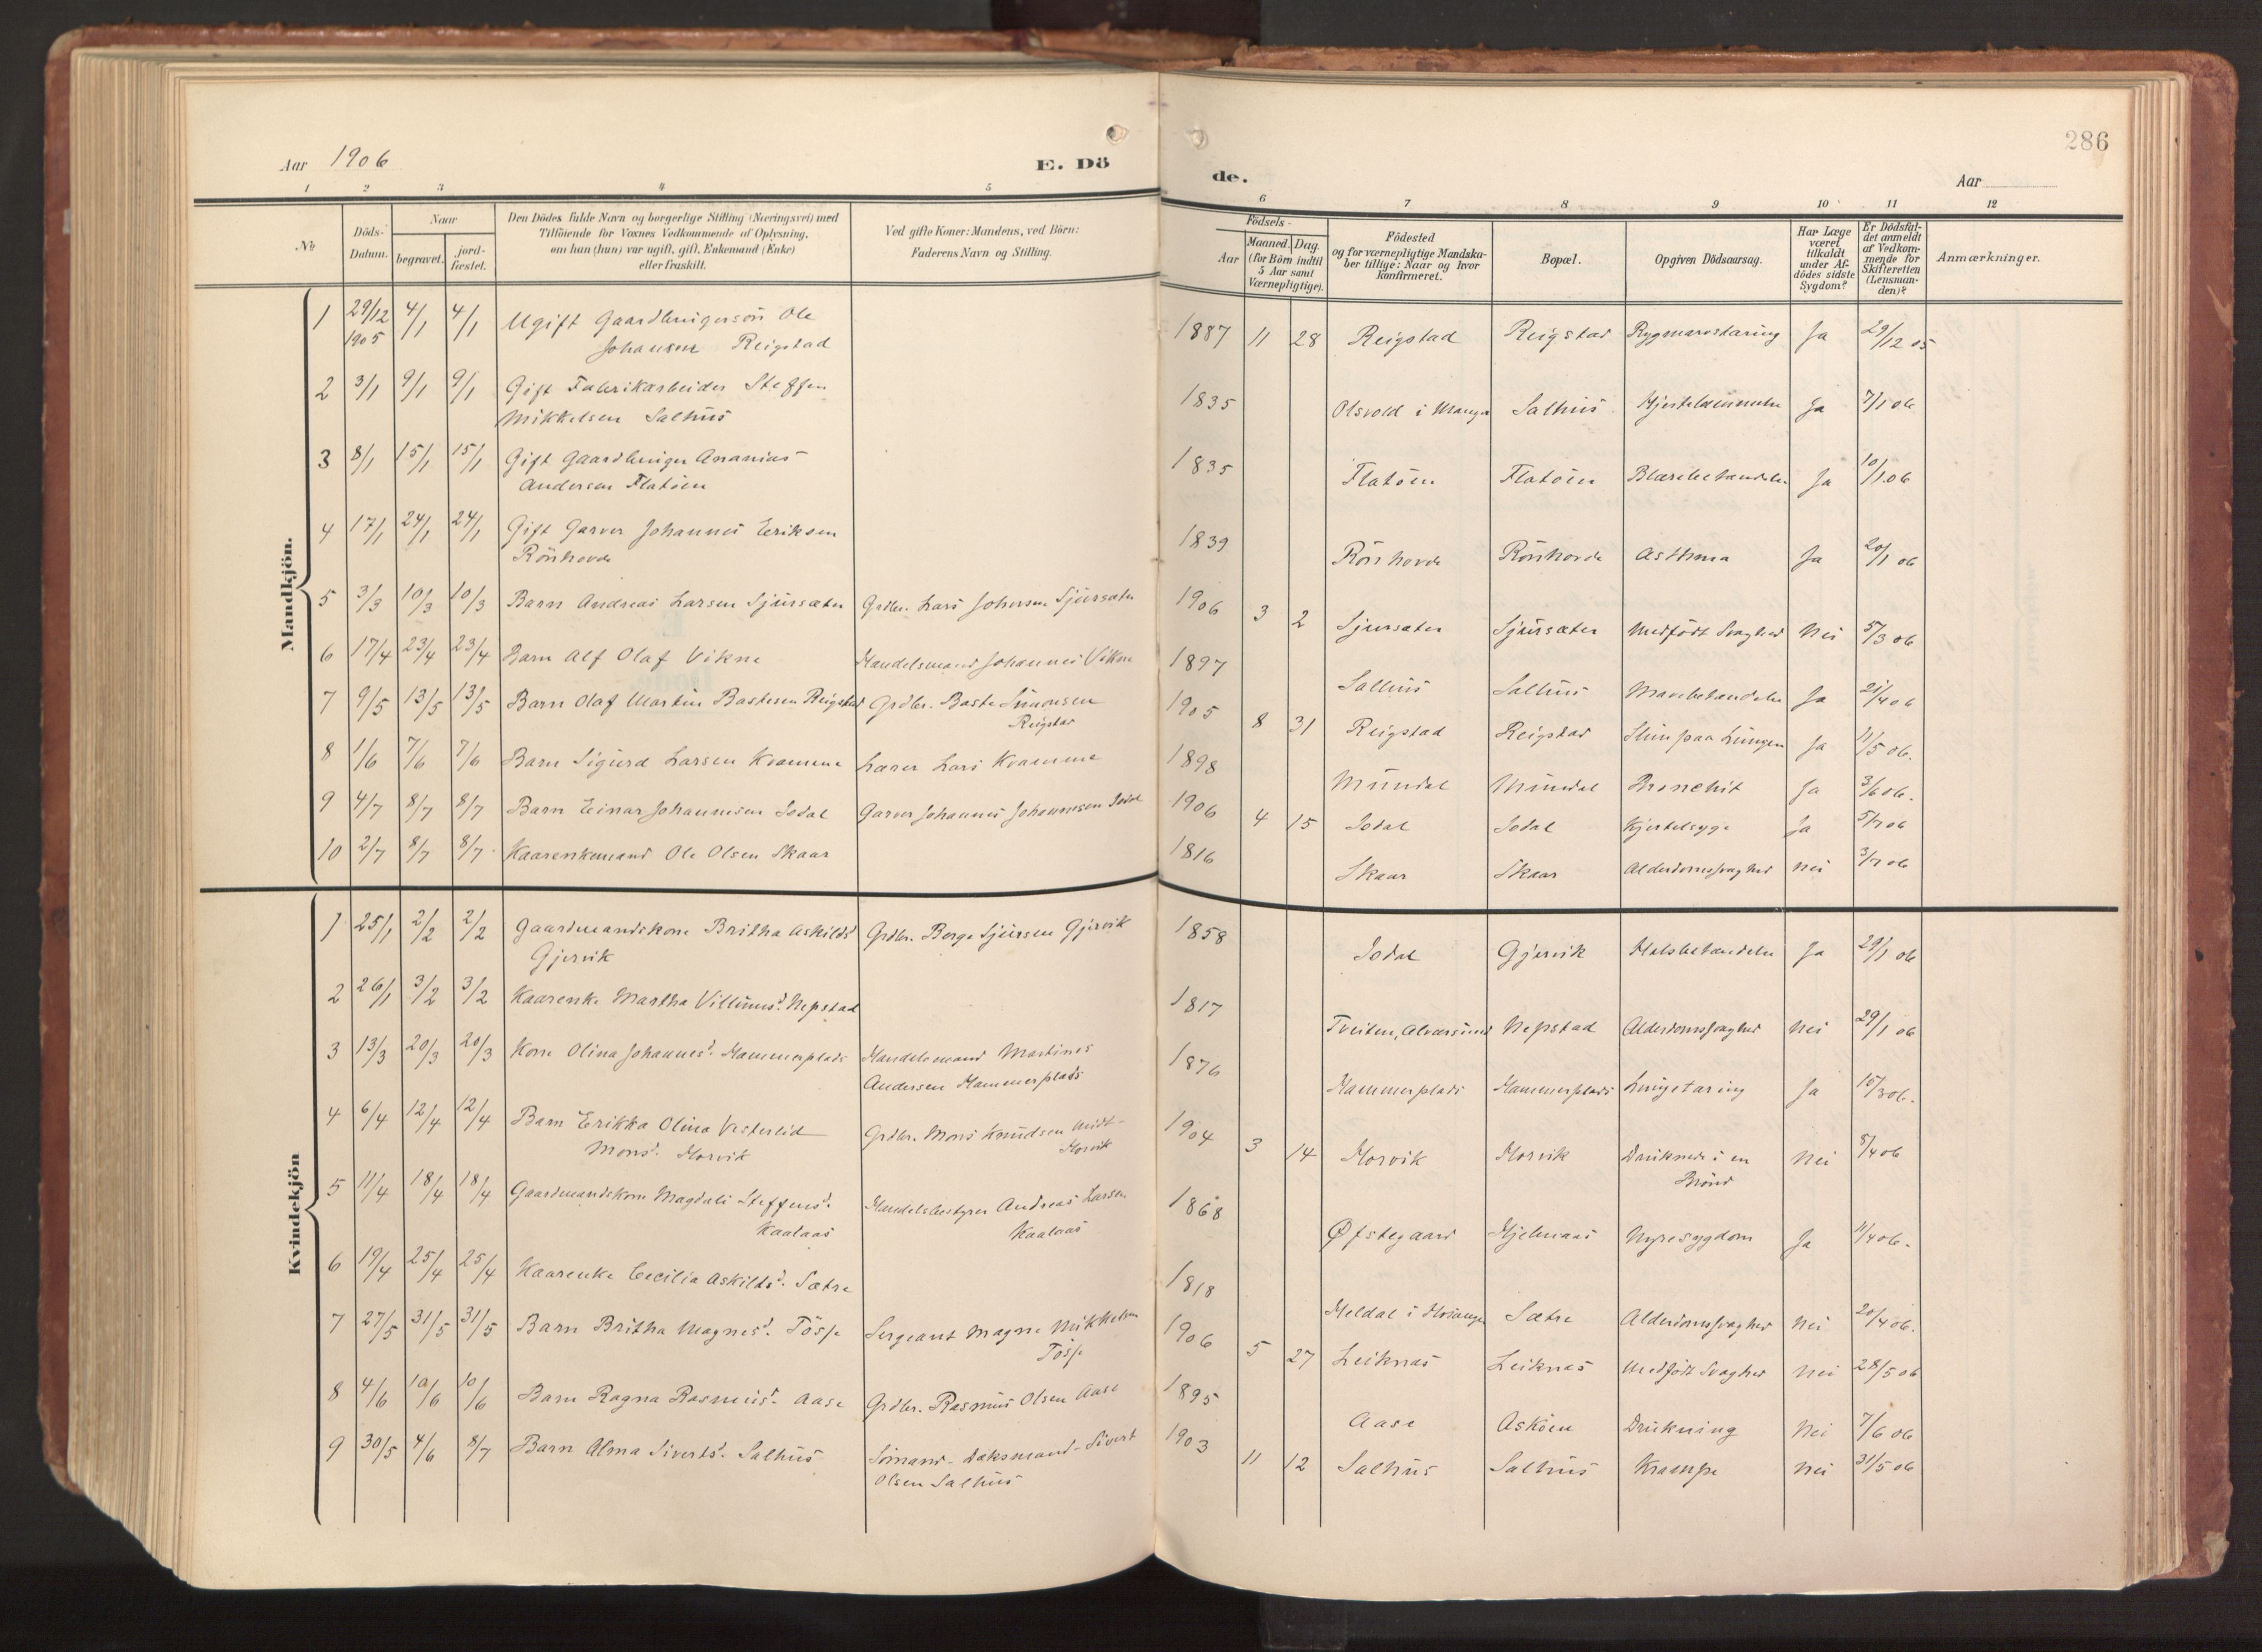 Aar 1906
E. Dö
de.
286
Aar
1 2 3 4 5 6 7 8 9 10 11 12
No
Döds-Datum.
Naar
begravet.
jord-fæstet.
Den Dödes fulde Navn og borgerlige Stilling (Næringsvei) med
Tilföiende for Voxnes Vedkommende af Oplysning,
om han (hun) var ugift, gift, Enkemand (Enke)
eller fraskilt.
Ved gifte Koner: Mandens, ved Börn:
Faderens Navn og Stilling.
Födsels-
Aar
Maaned. Dag.
(for Börn indtil
5 Aar samt
Værnepligtige).
Födested
og for værnepligtige Mandska-
ber tillige: Naar og hvor
konfirmeret.
Bopæl.
Opgiven Dödsaarsag.
Har Læge
været
tilkaldt
under Af-
dödes sidste
Sygdom?
Er Dödsfal-
det anmeldt
af Vedkom-
mende for
Skifteretten
(Lensman-
den)?
Anmærkninger.
Mandkjön.
1 29/12 1905 4/1 4/1 Ugift Gaardbrugersön Ole
Johansen Reigstad 1887 11 28 Reigstad Reigstad Rygmarvstæring Ja 29/12 05
2 3/1 9/1 9/1 Gift Fabrikarbeider Steffen
Mikkelsen Salhus 1835 Olsvold i Manger Salhus Ja 7/1 06
3 8/1 15/1 15/1 Gift Gaardbruger Ananias
Andersen Flatöen 1835 Flatöen Flatöen Blærebetændelse Ja 10/1 06
4 17/1 24/1 24/1 Gift Garver Johannes Eriksen
Rönhovde 1839 Rönhovde Rönhovde Asthma Ja 20/1 06
5 3/3 10/3 10/3 Barn Andreas Larsen Sjursæter Grdbr. Lars Johnsen Sjursæter 1906 3 2 Sjursæter Sjursæter Medfödt Svaghed Nei 5/3 06
6 17/4 23/4 23/4 Barn Alf Olaf Vikne Handelsmand Johannes Vikne 1897 Salhus Salhus Mavebetændelse Ja 21/4 06
7 9/5 13/5 13/5 Barn Olaf Martin Bastesen Reigstad Grdbr. Baste Simonsen
Reigstad 1905 8 31 Reigstad Reigstad Slim paa Lungen Ja 11/5 06.
8 1/6 7/6 7/6 Barn Sigurd Larsen Kvamme Lærer Lars Kvamme 1898 Mundal Mundal Bronchit Ja 3/6 06.
9 4/7 8/7 8/7 Barn Einar Johannesen Isdal Garver Johannes Johannesen Isdal 1906 4 15 Isdal Isdal Kjertelsyge Ja 5/7 06
10 2/7 8/7 8/7 Kaarenkemand Ole Olsen Skaar 1816 Skaar Skaar Alderdomssvaghed Nei 3/7 06
Kvindekjön
1 25/1 2/2 2/2 Gaardmandskone Britha Askildsd
Gjervik Grdbr. Berge Sjursen Gjervik 1858 Isdal Gjervik Halsbetændelse Ja 29/1 06
2 26/1 3/2 3/2 Kaarenke Martha Villumsd. Nepstad 1817 Tveiten, Alversund Nepstad Alderdomssvaghed Nei 29/1 06
3 13/3 20/3 20/3 Kone Olina Johannesd. Hammersplads Handelsmand Martines
Andersen Hammersplads 1876 Hammersplads Hammersplads Lungetæring Ja 15/3 06.
4 6/4 12/4 12/4 Barn Erikka Olina Vesterlid
Monsd. Horvik Grdbr. Mons Knudsen Midt-
Horvik 1904 3 14 Horvik Horvik Druknede i en
Brönd Nei 8/4 06
5 11/4 18/4 18/4 Gaardmandskone Magdali Steffensd.
Kaalaas Handelsbestyrer Andreas Larsen
Kaalaas 1868 Øfstegaard Hjelmaas Nyresygdom Ja 11/4 06.
6 19/4 25/4 25/4 Kaarenke Cecilia Askildsd. Sætre 1818 Meldal i Hosanger Sætre Alderdomssvaghed Nei 20/4 06.
7 27/5 31/5 31/5 Barn Britha Magnesd. Tösse Sergeant Magne Mikkelsen
Tösse 1906 5 27 Leiknes Leiknes Medfödt Svaghed Nei 28/5 06
8 4/6 10/6 10/6 Barn Ragna Rasmusd. Aase Grdbr. Rasmus Olsen Aase 1895 Aase Asköen Drukning Nei 7/6 06
9 30/5 4/6 8/7 Barn Alma Sivertsd. Salhus Sömand - Dæksmand - Sivert
Olsen Salhus 1903 11 12 Salhus Salhus Krampe Nei 31/5 06